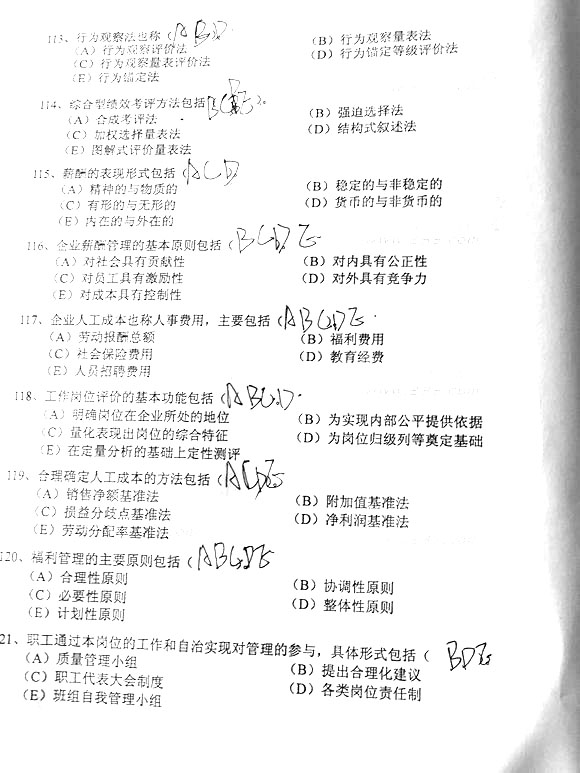 113、行为观察法也称（ABD
（A）行为观察评价法 （B）行为观察量表法
（C）行为观察量表评价法 （D）行为锚定等级评价法
（E）行为锚定法
114、综合型绩效考评方法包括
（A）合成考评法 （B）强迫选择法
（C）加权选择量表法 （D）结构式叙述法
（E）图解式评价量表法
115、薪酬的表现形式包括（ACD
（A）精神的与物质的 （B）稳定的与非稳定的
（C）有形的与无形的 （D）货币的与非货币的
（E）内在的与外在的
116、企业薪酬管理的基本原则包括（BCDE
（A）对社会具有贡献性 （B）对内具有公正性
（C）对员工具有激励性 （D）对外具有竞争力
（E）对成本具有控制性
117、企业人工成本也称人事费用，主要包括（ABCDE
（A）劳动报酬总额 （B）福利费用
（C）社会保险费用 （D）教育经费
（E）人员招聘费用
118、工作岗位评价的基本功能包括（ABCD
（A）明确岗位在企业所处的地位 （B）为实现内部公平提供依据
（C）量化表现出岗位的综合特征 （D）为岗位归级列等奠定基础
（E）在定量分析的基础上定性测评
119、合理确定人工成本的方法包括（ACDE
（A）销售净额基准法 （B）附加值基准法
（C）损益分歧点基准法 （D）净利润基准法
（E）劳动分配率基准法
120、福利管理的主要原则包括（ABCDE
（A）合理性原则 （B）协调性原则
（C）必要性原则 （D）整体性原则
（E）计划性原则
21、职工通过本岗位的工作和自治实现对管理的参与，具体形式包括（ BDE
（A）质量管理小组 （B）提出合理化建议
（C）职工代表大会制度 （D）各类岗位责任制
（E）班组自我管理小组